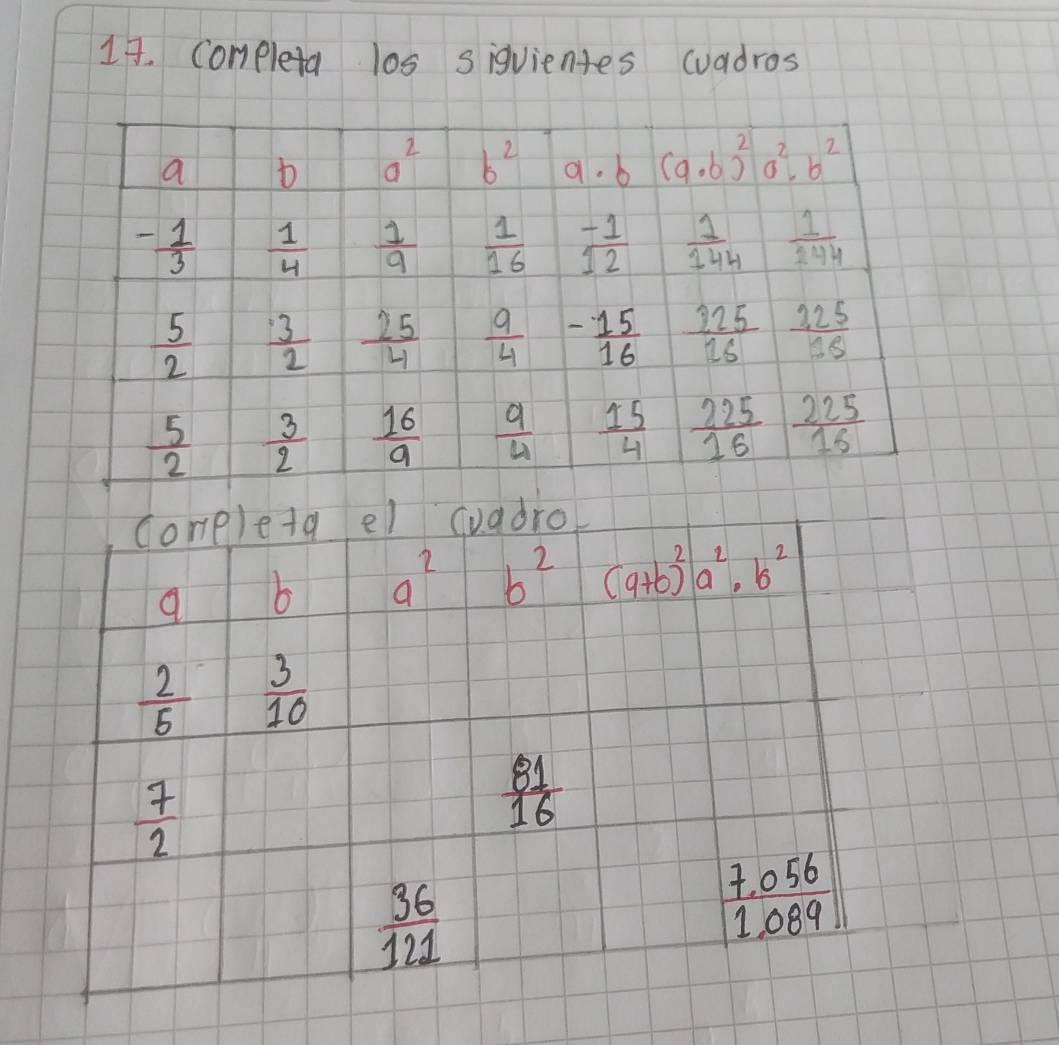 17. Completa los siguientes cuadros
a b a² b² a·b (a·b)² a²·b²
-1/3 1/4 1/9 1/16 -1/12 1/144 1/144
5/2 3/2 25/4 9/4 -15/16 225/16 225/16
5/2 3/2 16/9 9/4 15/4 225/16 225/16
Completa el cuadro
a b a² b² (a+b)² a²·b²
2/5 3/10
7/2 81/16
36/121 7.056/1.089